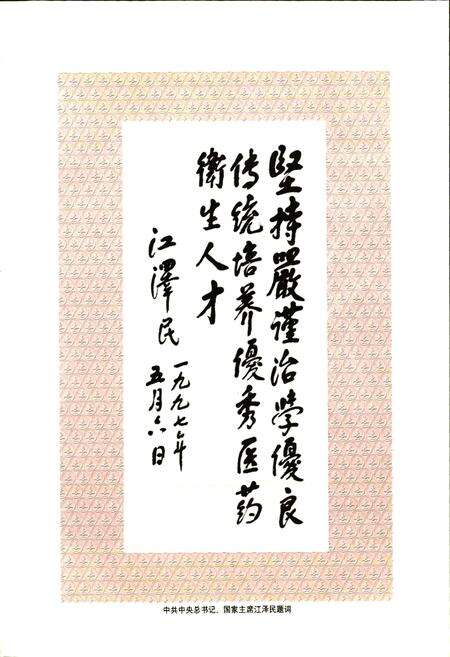 堅持嚴謹治学優良
傳统培养優秀医药
衛生人才
江澤民
一九九七年
五月六日
中共中央总书记、国家主席江泽民题词